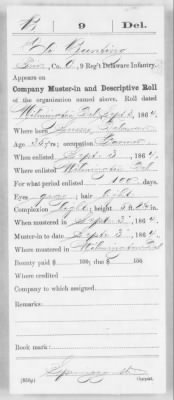 B | 9 | Del.
Bunting
Co. , 9 Reg't Delaware Infantry.
Appears on
Company Muster-in and Descriptive Roll
of the organization named above. Roll dated
Wilmington Del Sept 3, 186
Where born Delaware
Age y'rs; occupation Farmer
When enlisted Sept 3, 186
Where enlisted Wilmington Del
For what period enlisted 100 days.
Eyes ; hair light
Complexion light; height ft. in.
When mustered in Sept 3, 186
Muster-in to date Sept 3, 186
Where mustered in Wilmington Del
Bounty paid $ 100; due $ 100
Where credited
Company to which assigned
Remarks:
Book mark:
(356g) Copyist.